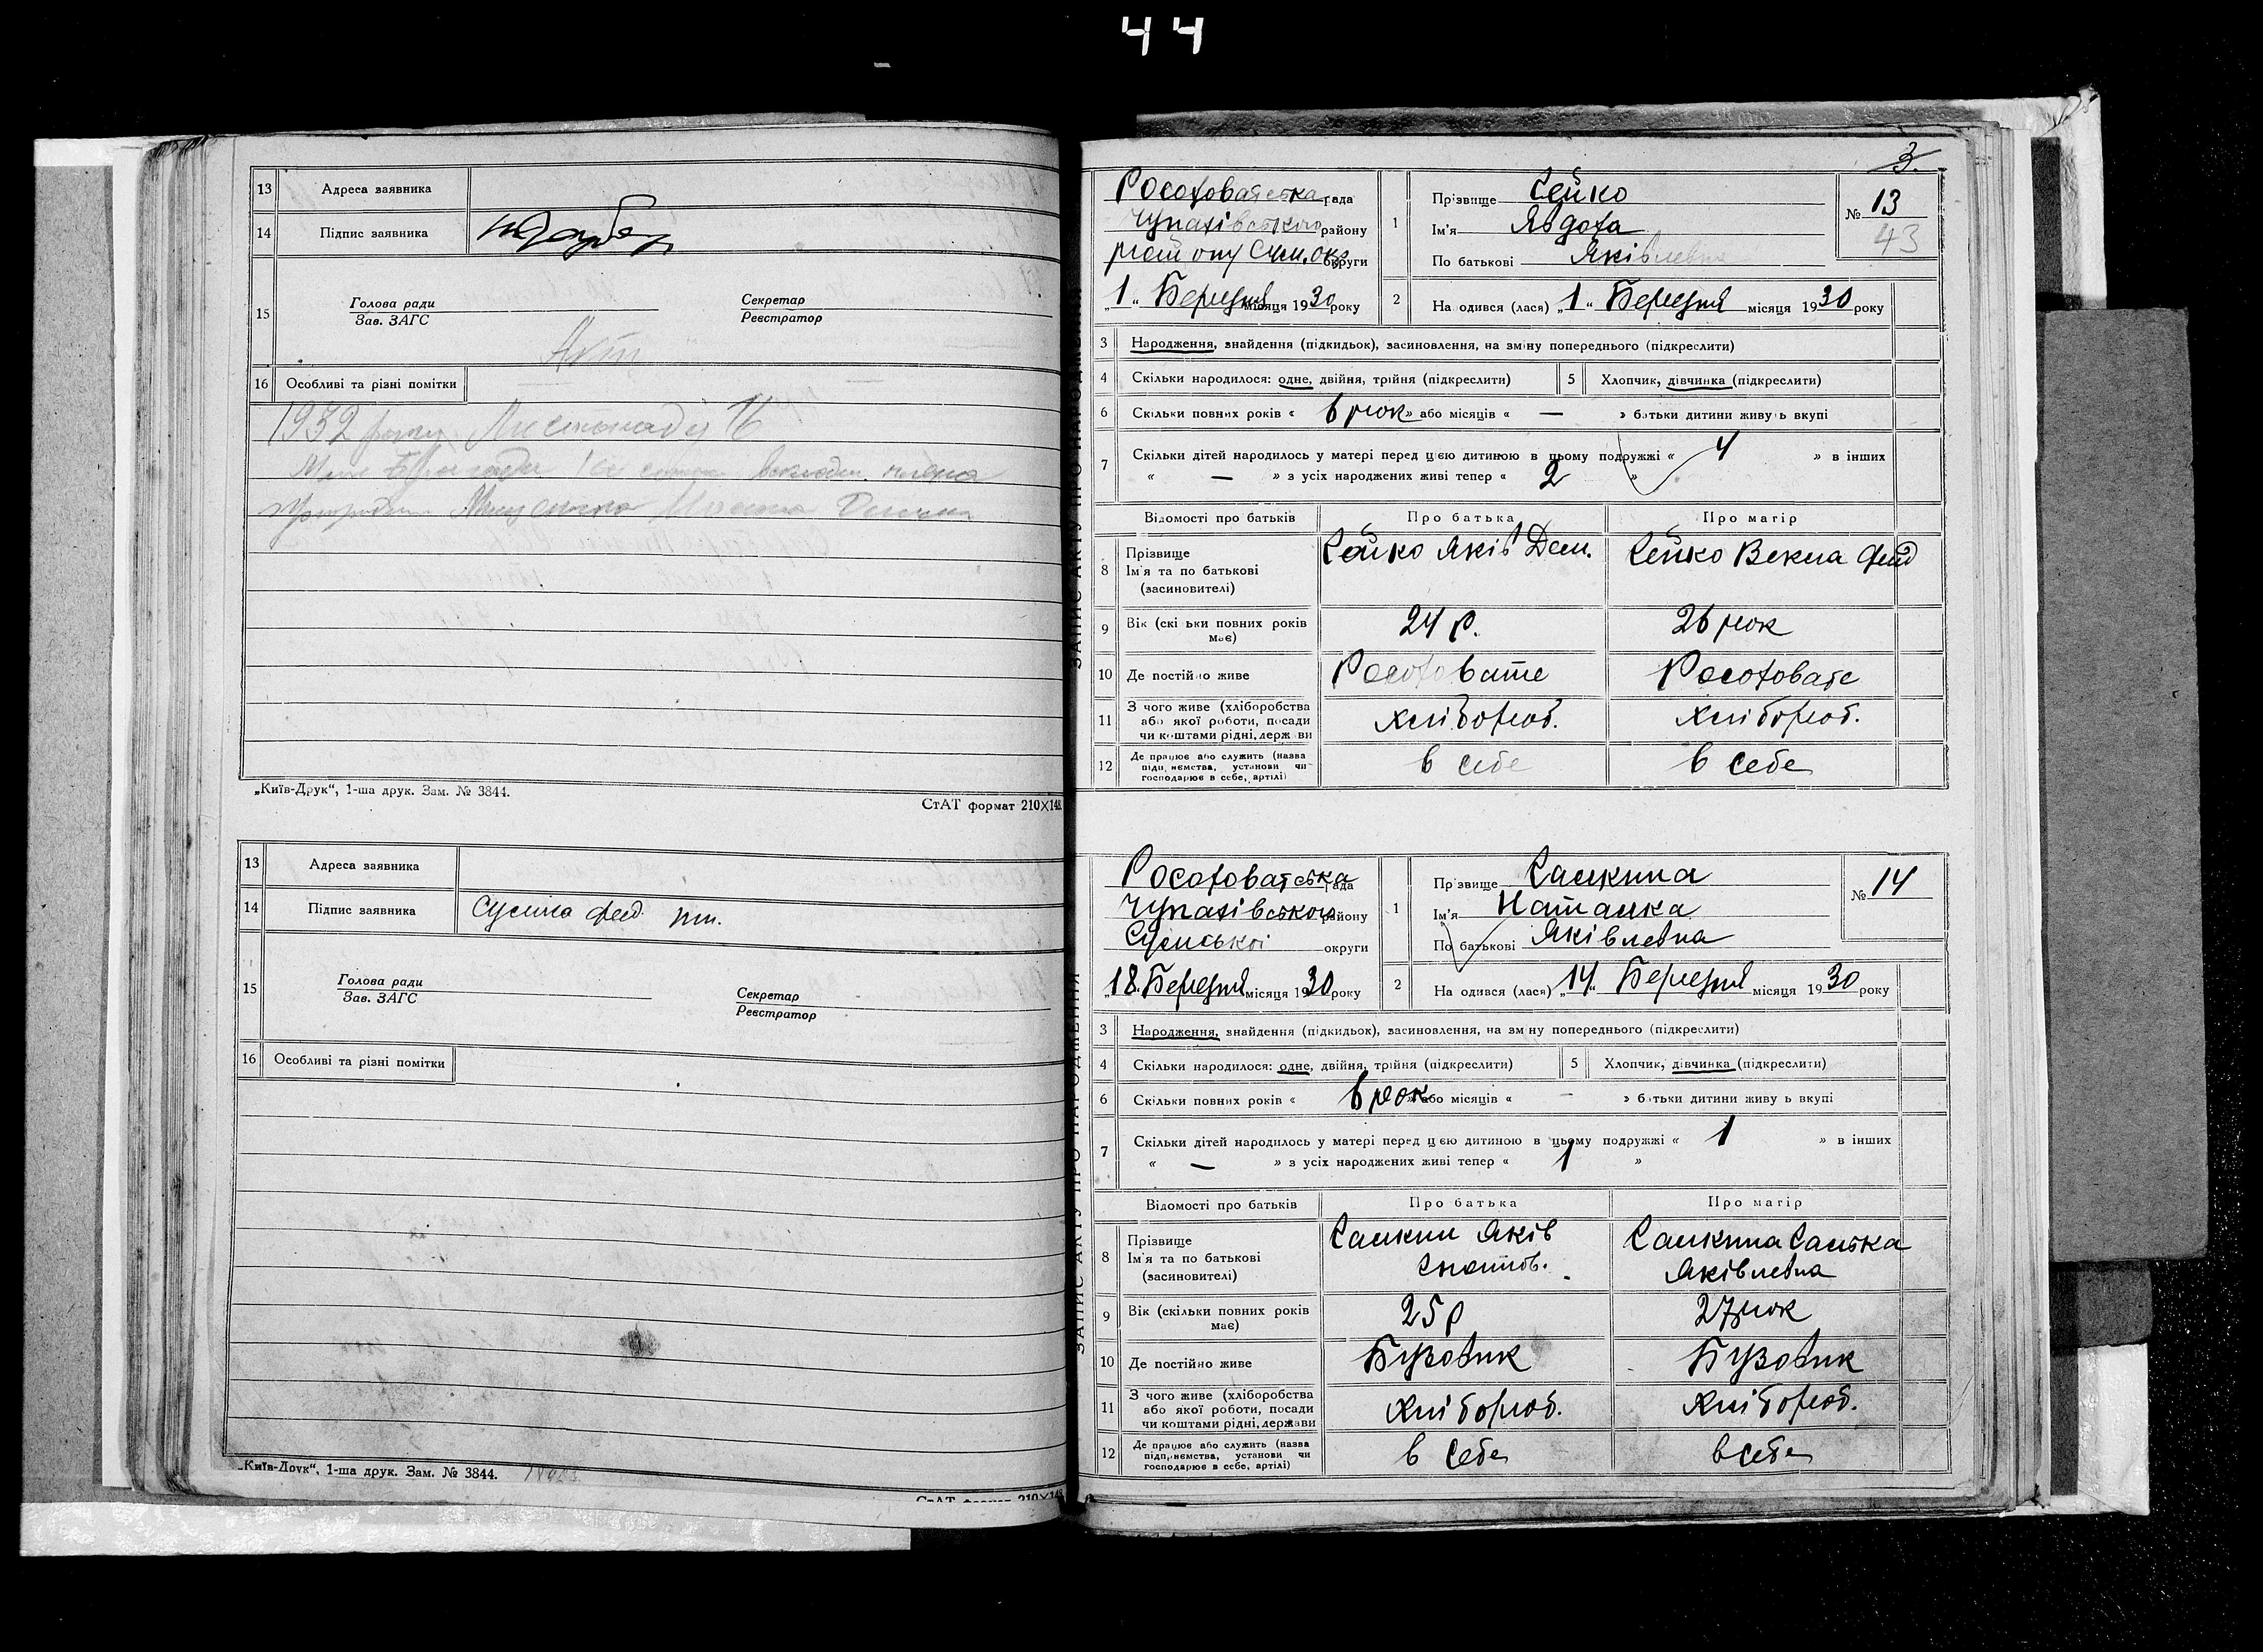 44
13 Адреса заявника
14 Підпис заявника
15 Голова ради Секретар
Зав. ЗАГС Реєстратор
Акт
16 Особливі та різні помітки
1932 року Листопаду 16
„Київ-Друк“, 1-ша друк. Зам. № 3844.
СтАТ формат 210×148.
13 Адреса заявника
14 Підпис заявника
15 Голова ради Секретар
Зав. ЗАГС Реєстратор
16 Особливі та різні помітки
„Київ-Друк“, 1-ша друк. Зам. № 3844.
СтАТ формат 210×148
3
ЗАПИС АКТУ ПРО НАРОДЖЕННЯ
Росоховатська рада
Чупахівського району
округи
„1“ Березня місяця 1930 року
1 Прізвище Сейко
Ім'я Явдоха
По батькові Яківлевна
№ 13
43
2 Народився (лася) „1“ Березня місяця 1930 року
3 Народження, знайдення (підкидьок), засиновлення, на зміну попереднього (підкреслити)
4 Скільки народилося: одне, двійня, трійня (підкреслити)
5 Хлопчик, дівчинка (підкреслити)
6 Скільки повних років « 6 рок » або місяців « — » батьки дитини живуть вкупі
7 Скільки дітей народилось у матері перед цією дитиною в цьому подружжі « 4 » в інших
« — » з усіх народжених живі тепер « 2 »
Відомості про батьків Про батька Про матір
8 Прізвище Ім'я та по батькові (засновителі) Сейко Яків Дем. Сейко Векла Фед
9 Вік (скільки повних років має) 24 р. 26 рок
10 Де постійно живе Росоховате Росоховате
11 З чого живе (хліборобства або якої роботи, посади чи коштами рідні, держави Хлібороб. Хлібороб.
12 Де працює або служить (назва підприємства, установи чи господарює в себе, артілі) в себе в себе
ЗАПИС АКТУ ПРО НАРОДЖЕННЯ
Росоховатська рада
Чупахівського району
Сумської округи
„18“ Березня місяця 1930 року
1 Прізвище Самкина
Ім'я Наталка
По батькові Яківлевна
№ 14
2 Народився (лася) „14“ Березня місяця 1930 року
3 Народження, знайдення (підкидьок), засиновлення, на зміну попереднього (підкреслити)
4 Скільки народилося: одне, двійня, трійня (підкреслити)
5 Хлопчик, дівчинка (підкреслити)
6 Скільки повних років « 6 рок » або місяців « — » батьки дитини живуть вкупі
7 Скільки дітей народилось у матері перед цією дитиною в цьому подружжі « 1 » в інших
« — » з усіх народжених живі тепер « 1 »
Відомості про батьків Про батька Про матір
8 Прізвище Ім'я та по батькові (засиновителі) Самкин Яків Самкина Санька
Яківлевна
9 Вік (скільки повних років має) 25 р 27 рок
10 Де постійно живе Бузовик Бузовик
11 З чого живе (хліборобства або якої роботи, посади чи коштами рідні, держави Хлібороб. Хлібороб.
12 Де працює або служить (назва підприємства, установи чи господарює в себе, артілі) в себе в себе